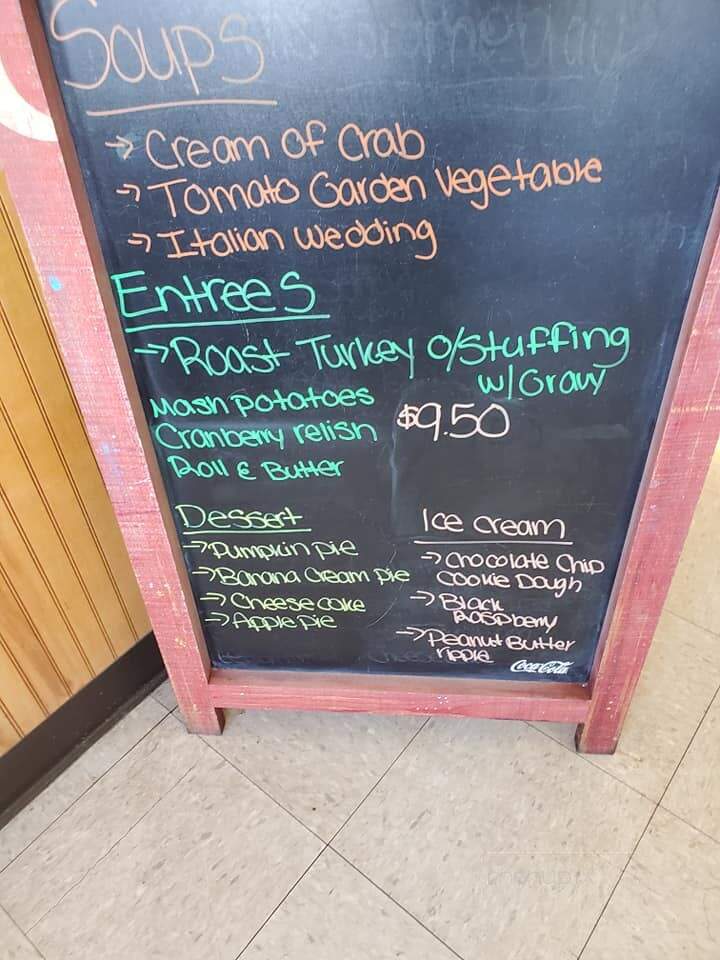 Soups
→ Cream of Crab
→ Tomato Garden Vegetable
→ Italian Wedding
Entrees
→ Roast Turkey o/stuffing
w/Gravy
Mash potatoes
Cranberry relish
Roll & Butter
$9.50
Dessert
→ Pumpkin pie
→ Banana Cream pie
→ Cheese cake
→ Apple pie
Ice cream
→ Chocolate Chip
Cookie Dough
→ Black
Raspberry
→ Peanut Butter
ripple
Coca-Cola